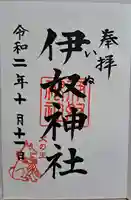 奉拝
伊奴神社
いぬ
令和二年十月十一日